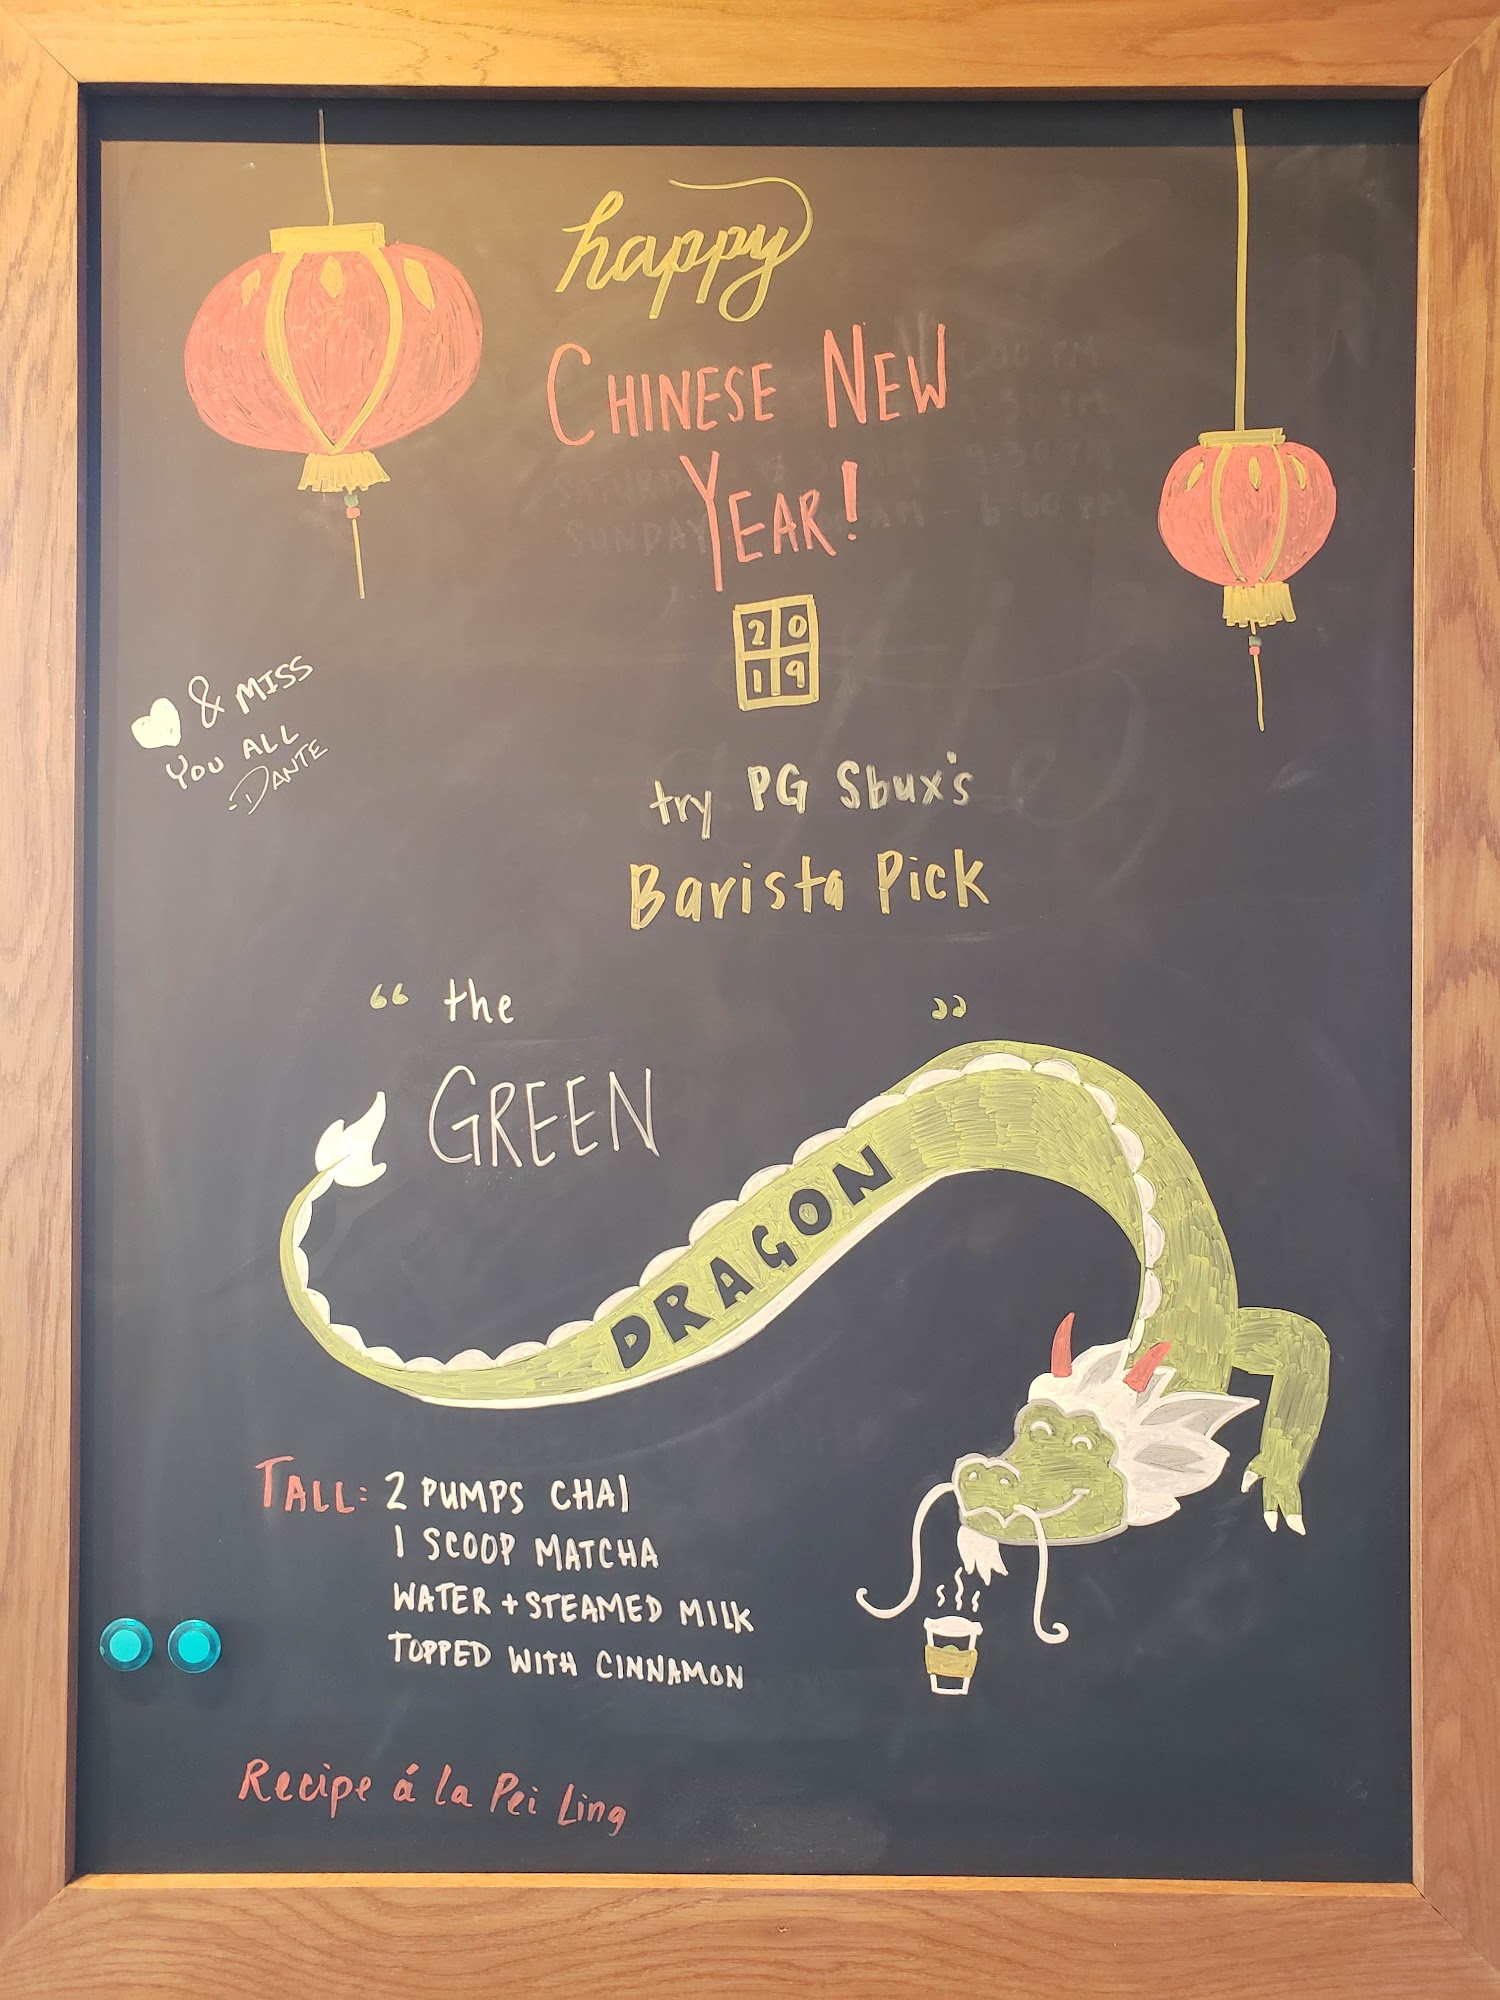 happy
CHINESE NEW
YEAR!
20
19
♥ & MISS
YOU ALL
-DANTE
try PG Sbux's
Barista Pick
“ the ”
GREEN
DRAGON
TALL: 2 PUMPS CHAI
1 SCOOP MATCHA
WATER + STEAMED MILK
TOPPED WITH CINNAMON
Recipe á la Pei Ling